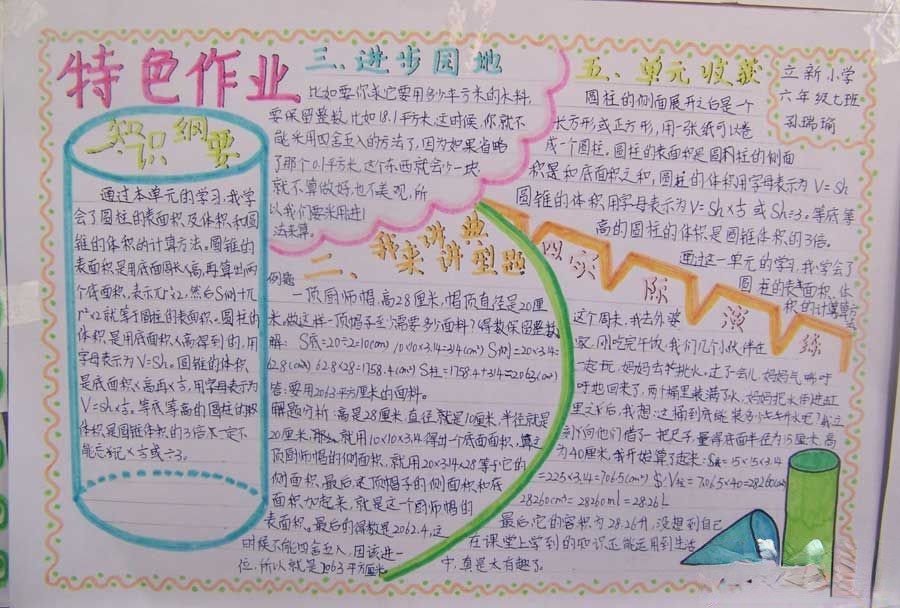 特色作业
知识纲要
通过本单元的学习,我学
会了圆柱的表面积及体积,和圆
锥的体积的计算方法。圆锥的
表面积是用底面周长×高,再算出两
个底面积,表示πr²×2,然后S侧+π
r²×2就等于圆柱的表面积。圆柱的
体积是用底面积×高得到的,用
字母表示为V=Sh。圆锥的体积
是底面积×高再×⅓,用字母表示为
V=Sh×⅓。等底等高的圆柱的
体积是圆锥体积的3倍
不能忘记×⅓或÷3。
三、进步园地
比如要你求它要用多少平方米的木料,
要保留整数,比如18.1平方米,这时候,你就不
能采用四舍五入的方法了,因为如果省略
了那个0.1平方米,这个东西就会少一块,
就不算做好,也不美观,所
以我们要采用进1
法来算。
二、我来讲典型题
例题
一顶厨师帽,高28厘米,帽顶直径是20厘
米,做这样一顶帽子至少需要多少面料?得数保留整数
解: S底=20÷2=10(cm) 10×10×3.14=314(cm²) S侧=20×3.14=
62.8(cm²) 62.8×28=1758.4(cm²) S柱=1758.4+314≈2063(cm²)
答:要用2063平方厘米的面料。
解题分析:高是28厘米,直径就是10厘米,半径就是
20厘米,那么就用10×10×3.14得出一个底面面积,算
顶厨师帽的侧面积,就用20×3.14×28等于它的
侧面积,最后是顶帽子的侧面积和底
面积加起来,就是这个厨师帽的
表面积。最后的得数是2062.4,这
时候不能四舍五入,因该进一
位,所以就是2063平方厘米
五、单元收获
立新小学
六年级七班
孙瑞瑜
圆柱的侧面展开之后是一个
长方形或正方形,用一张纸可以卷
成一个圆柱。圆柱的表面积是圆柱的侧面
积是和底面积之和,圆柱的体积用字母表示为V=Sh
圆锥的体积用字母表示为V=Sh×⅓或Sh÷3。等底等
高的圆柱的体积是圆锥体积的3倍。
通过这一单元的学习,我学会了
圆柱的表面积、体
积的计算
四、实际演练
这个周末,我去外婆
家,刚吃完午饭,我们几个小伙伴在
一起玩,妈妈去挑水,过了一会儿,妈妈气呼
呼地回来了,两个桶里装满了水,妈妈把水倒进缸
里之后,我想:这桶到底能装多少
刻向他们借了一把尺子,量得底面半径为15厘米,高
为40厘米,我开始算了起来:S底=15×15×3.14
=225×3.14=706.5(cm²) V柱=706.5×40=28260(cm³)
28260cm³=28260ml=28.26L
最后,它的容积为28.26升,没想到自己
在课堂上学到的知识还能运用到生活
中,真是太有趣了。